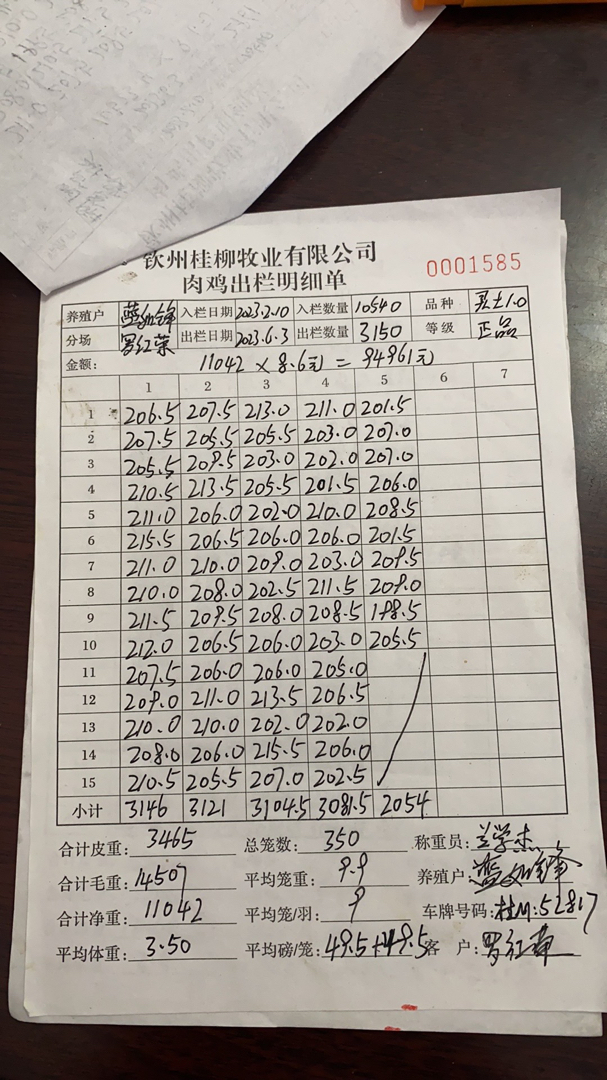 钦州桂柳牧业有限公司
肉鸡出栏明细单 0001585
养殖户 入栏日期 2023.2.10 入栏数量 10540 品种 土1.0
分场 罗红荣 出栏日期 2023.6.3 出栏数量 3150 等级 正品
金额: 11042 × 8.6元 = 94961元
1 2 3 4 5 6 7
1 206.5 207.5 213.0 211.0 201.5
2 207.5 205.5 205.5 203.0 207.0
3 205.5 209.5 203.0 202.0 207.0
4 210.5 213.5 205.5 201.5 206.0
5 211.0 206.0 202.0 210.0 208.5
6 215.5 206.5 206.0 206.0 201.5
7 211.0 210.0 209.0 203.0 209.5
8 210.0 208.0 202.5 211.5 209.0
9 211.5 209.5 208.0 208.5 198.5
10 212.0 206.5 206.0 203.0 205.5
11 207.5 206.0 206.0 205.0
12 209.0 211.0 213.5 206.5
13 210.0 210.0 202.0 202.0
14 208.0 206.0 215.5 206.0
15 210.5 205.5 207.0 202.5
小计 3146 3121 3104.5 3081.5 2054
合计皮重: 3465 总笼数: 350 称重员: 兰学杰
合计毛重: 14507 平均笼重: 9.9 养殖户:
合计净重: 11042 平均笼/羽: 9 车牌号码: 桂M:52817
平均体重: 3.50 平均磅/笼: 49.5+49.5 客户: 罗红荣